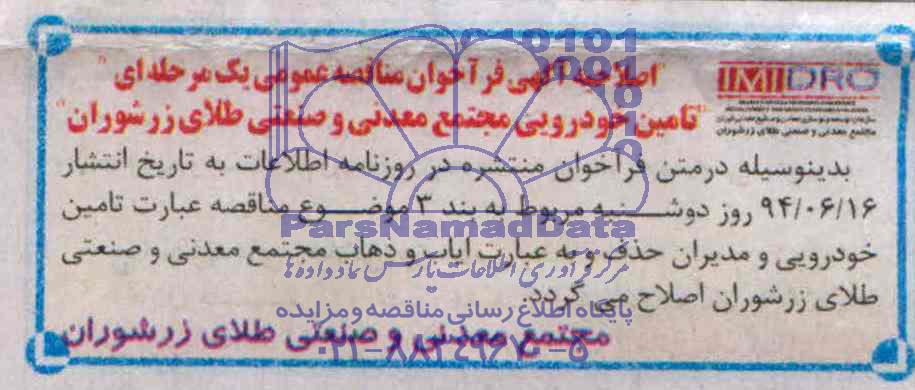 "اصلاحیه آگهی فرآخوان مناقصه عمومی یک مرحله ای"
"تامین خودرویی مجتمع معدنی و صنعتی طلای زرشوران"
IMIDRO
مجتمع معدنی و صنعتی طلای زرشوران
بدینوسیله درمتن فرآخوان منتشره در روزنامه اطلاعات به تاریخ انتشار
۹۴/۰۶/۱۶ روز دوشنبه مربوط به بند ۳ موضوع مناقصه عبارت تامین
خودرویی و مدیران حذف و به عبارت ایاب و ذهاب مجتمع معدنی و صنعتی
طلای زرشوران اصلاح می گردد.
مجتمع معدنی و صنعتی طلای زرشوران
ParsNamadData
مرکز فرآوری اطلاعات پارس نماد داده ها
پایگاه اطلاع رسانی مناقصه و مزایده
۰۲۱-۸۸۳۴۹۶۷۰-۵